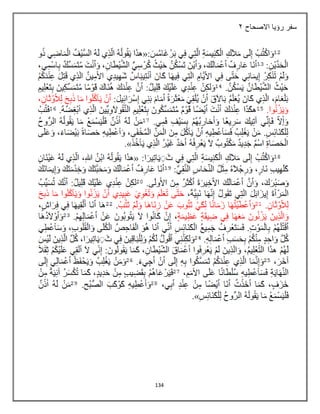 سفر رؤيا الاصحاح ٢
١٢وَاكْتُبْ إِلَى مَلاَكِ الْكَنِيسَةِ الَّتِي فِي بَرْغَامُسَ:«هذَا يَقُولُهُ الَّذِي لَهُ السَّيْفُ الْمَاضِي ذُو
الْحَدَّيْنِ: ١٣أَنَا عَارِفٌ أَعْمَالَكَ، وَأَيْنَ تَسْكُنُ حَيْثُ كُرْسِيُّ الشَّيْطَانِ، وَأَنْتَ مُتَمَسِّكٌ بِاسْمِي،
وَلَمْ تُنْكِرْ إِيمَانِي حَتَّى فِي الأَيَّامِ الَّتِي فِيهَا كَانَ أَنْتِيبَاسُ شَهِيدِي الأَمِينُ الَّذِي قُتِلَ عِنْدَكُمْ
حَيْثُ الشَّيْطَانُ يَسْكُنُ. ١٤وَلكِنْ عِنْدِي عَلَيْكَ قَلِيلٌ: أَنَّ عِنْدَكَ هُنَاكَ قَوْمًا مُتَمَسِّكِينَ بِتَعْلِيمِ
بَلْعَامَ، الَّذِي كَانَ يُعَلِّمُ بَالاَقَ أَنْ يُلْقِيَ مَعْثَرَةً أَمَامَ بَنِي إِسْرَائِيلَ: أَنْ يَأْكُلُوا مَا ذُبِحَ لِلأَوْثَانِ،
وَيَزْنُوا. ١٥هكَذَا عِنْدَكَ أَنْتَ أَيْضًا قَوْمٌ مُتَمَسِّكُونَ بِتَعْلِيمِ النُّقُولاَوِيِّينَ الَّذِي أُبْغِضُهُ. ١٦فَتُبْ
وَإِلاَّ فَإِنِّي آتِيكَ سَرِيعًا وَأُحَارِبُهُمْ بِسَيْفِ فَمِي. ١٧مَنْ لَهُ أُذُنٌ فَلْيَسْمَعْ مَا يَقُولُهُ الرُّوحُ
لِلْكَنَائِسِ. مَنْ يَغْلِبُ فَسَأُعْطِيهِ أَنْ يَأْكُلَ مِنَ الْمَنِّ الْمُخْفَى، وَأُعْطِيهِ حَصَاةً بَيْضَاءَ، وَعَلَى
الْحَصَاةِ اسْمٌ جَدِيدٌ مَكْتُوبٌ لاَ يَعْرِفُهُ أَحَدٌ غَيْرُ الَّذِي يَأْخُذُ».
١٨وَاكْتُبْ إِلَى مَلاَكِ الْكَنِيسَةِ الَّتِي فِي ثَِيَاتِيرَا:«هذَا يَقُولُهُ ابْنُ اللهِ، الَّذِي لَهُ عَيْنَانِ
كَلَهِيبِ نَارٍ، وَرِجْلاَهُ مِثْلُ النُّحَاسِ النَّقِيِّ: ١٩أَنَا عَارِفٌ أَعْمَالَكَ وَمَحَبَّتَكَ وَخِدْمَتَكَ وَإِيمَانَكَ
وَصَبْرَكَ، وَأَنَّ أَعْمَالَكَ الأَخِيرَةَ أَكْثَرُ مِنَ الأُولَى. ٢٠لكِنْ عِنْدِي عَلَيْكَ قَلِيلٌ: أَنَّكَ تُسَيِّبُ
الْمَرْأَةَ إِيزَابَلَ الَّتِي تَقُولُ إِنَّهَا نَبِيَّةٌ، حَتَّى تُعَلِّمَ وَتُغْوِيَ عَبِيدِي أَنْ يَزْنُوا وَيَأْكُلُوا مَا ذُبِحَ
لِلأَوْثَانِ. ٢١وَأَعْطَيْتُهَا زَمَانًا لِكَيْ تَتُوبَ عَنْ زِنَاهَا وَلَمْ تَتُبْ. ٢٢هَا أَنَا أُلْقِيهَا فِي فِرَاشٍ،
وَالَّذِينَ يَزْنُونَ مَعَهَا فِي ضِيقَةٍ عَظِيمَةٍ، إِنْ كَانُوا لاَ يَتُوبُونَ عَنْ أَعْمَالِهِمْ. ٢٣وَأَوْلاَدُهَا
أَقْتُلُهُمْ بِالْمَوْتِ. فَسَتَعْرِفُ جَمِيعُ الْكَنَائِسِ أَنِّي أَنَا هُوَ الْفَاحِصُ الْكُلَى وَالْقُلُوبِ، وَسَأُعْطِي
كُلَّ وَاحِدٍ مِنْكُمْ بِحَسَبِ أَعْمَالِهِ. ٢٤وَلكِنَّنِي أَقُولُ لَكُمْ وَلِلْبَاقِينَ فِي ثَِيَاتِيرَا، كُلِّ الَّذِينَ لَيْسَ
لَهُمْ هذَا التَّعْلِيمُ، وَالَّذِينَ لَمْ يَعْرِفُوا أَعْمَاقَ الشَّيْطَانِ، كَمَا يَقُولُونَ: إِنِّي لاَ أُلْقِي عَلَيْكُمْ ثِقْلاً
آخَرَ، ٢٥وَإِنَّمَا الَّذِي عِنْدَكُمْ تَمَسَّكُوا بِهِ إِلَى أَنْ أَجِيءَ. ٢٦وَمَنْ يَغْلِبُ وَيَحْفَظُ أَعْمَالِي إِلَى
النِّهَايَةِ فَسَأُعْطِيهِ سُلْطَانًا عَلَى الأُمَمِ، ٢٧فَيَرْعَاهُمْ بِقَضِيبٍ مِنْ حَدِيدٍ، كَمَا تُكْسَرُ آنِيَةٌ مِنْ
خَزَفٍ، كَمَا أَخَذْتُ أَنَا أَيْضًا مِنْ عِنْدِ أَبِي، ٢٨وَأُعْطِيهِ كَوْكَبَ الصُّبْحِ. ٢٩مَنْ لَهُ أُذُنٌ
فَلْيَسْمَعْ مَا يَقُولُهُ الرُّوحُ لِلْكَنَائِسِ».
134